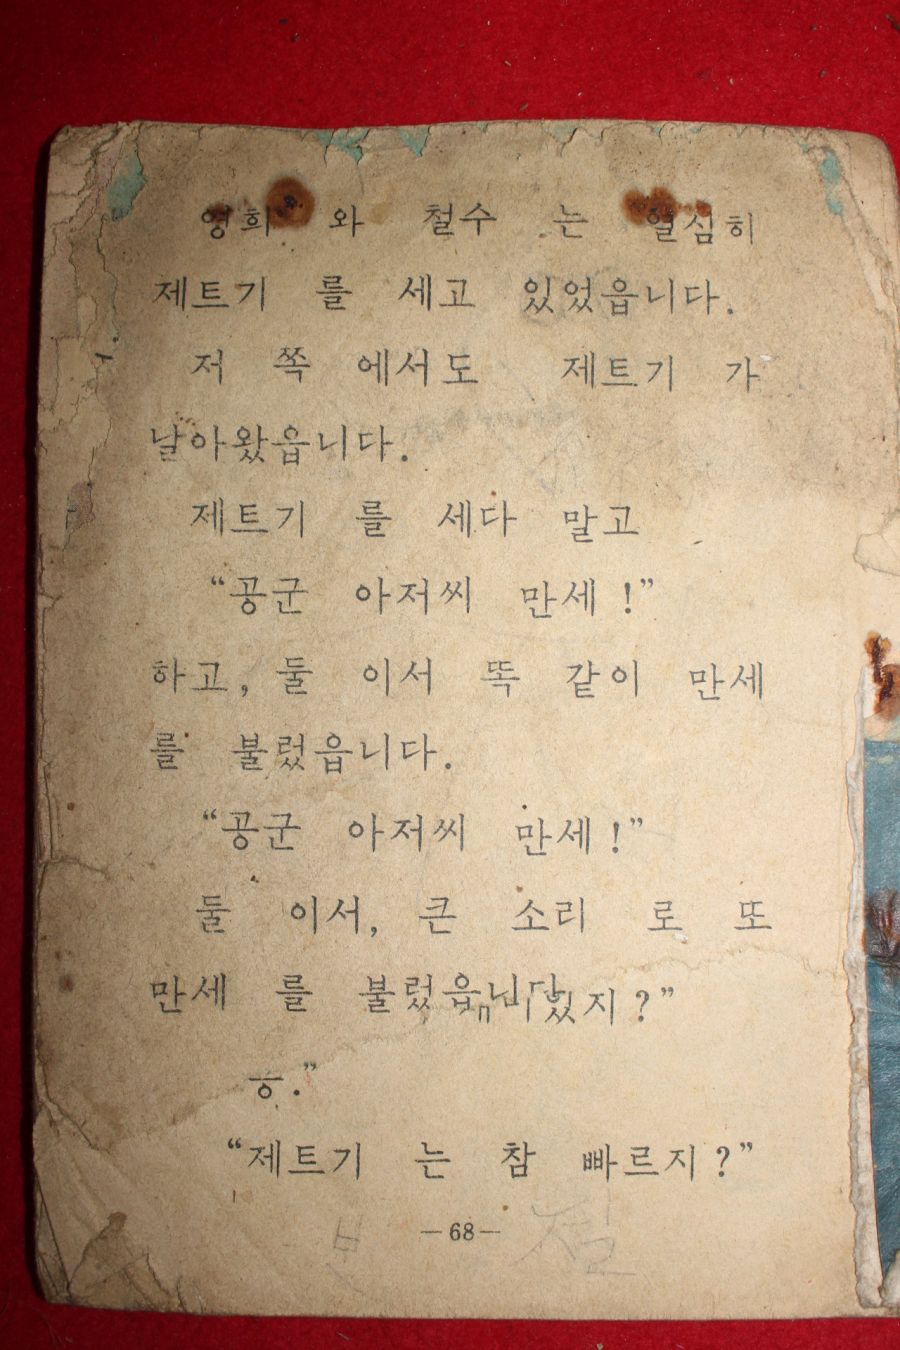 영희 와 철수 는 열심히
제트기 를 세고 있었읍니다.
저 쪽 에서도 제트기 가
날아왔읍니다.
제트기 를 세다 말고
“공군 아저씨 만세!”
하고, 둘 이서 똑 같이 만세
를 불렀읍니다.
“공군 아저씨 만세!”
둘 이서, 큰 소리 로 또
만세 를 불렀읍니다 있지?”
ㅎ.”
“제트기 는 참 빠르지?”
—68—